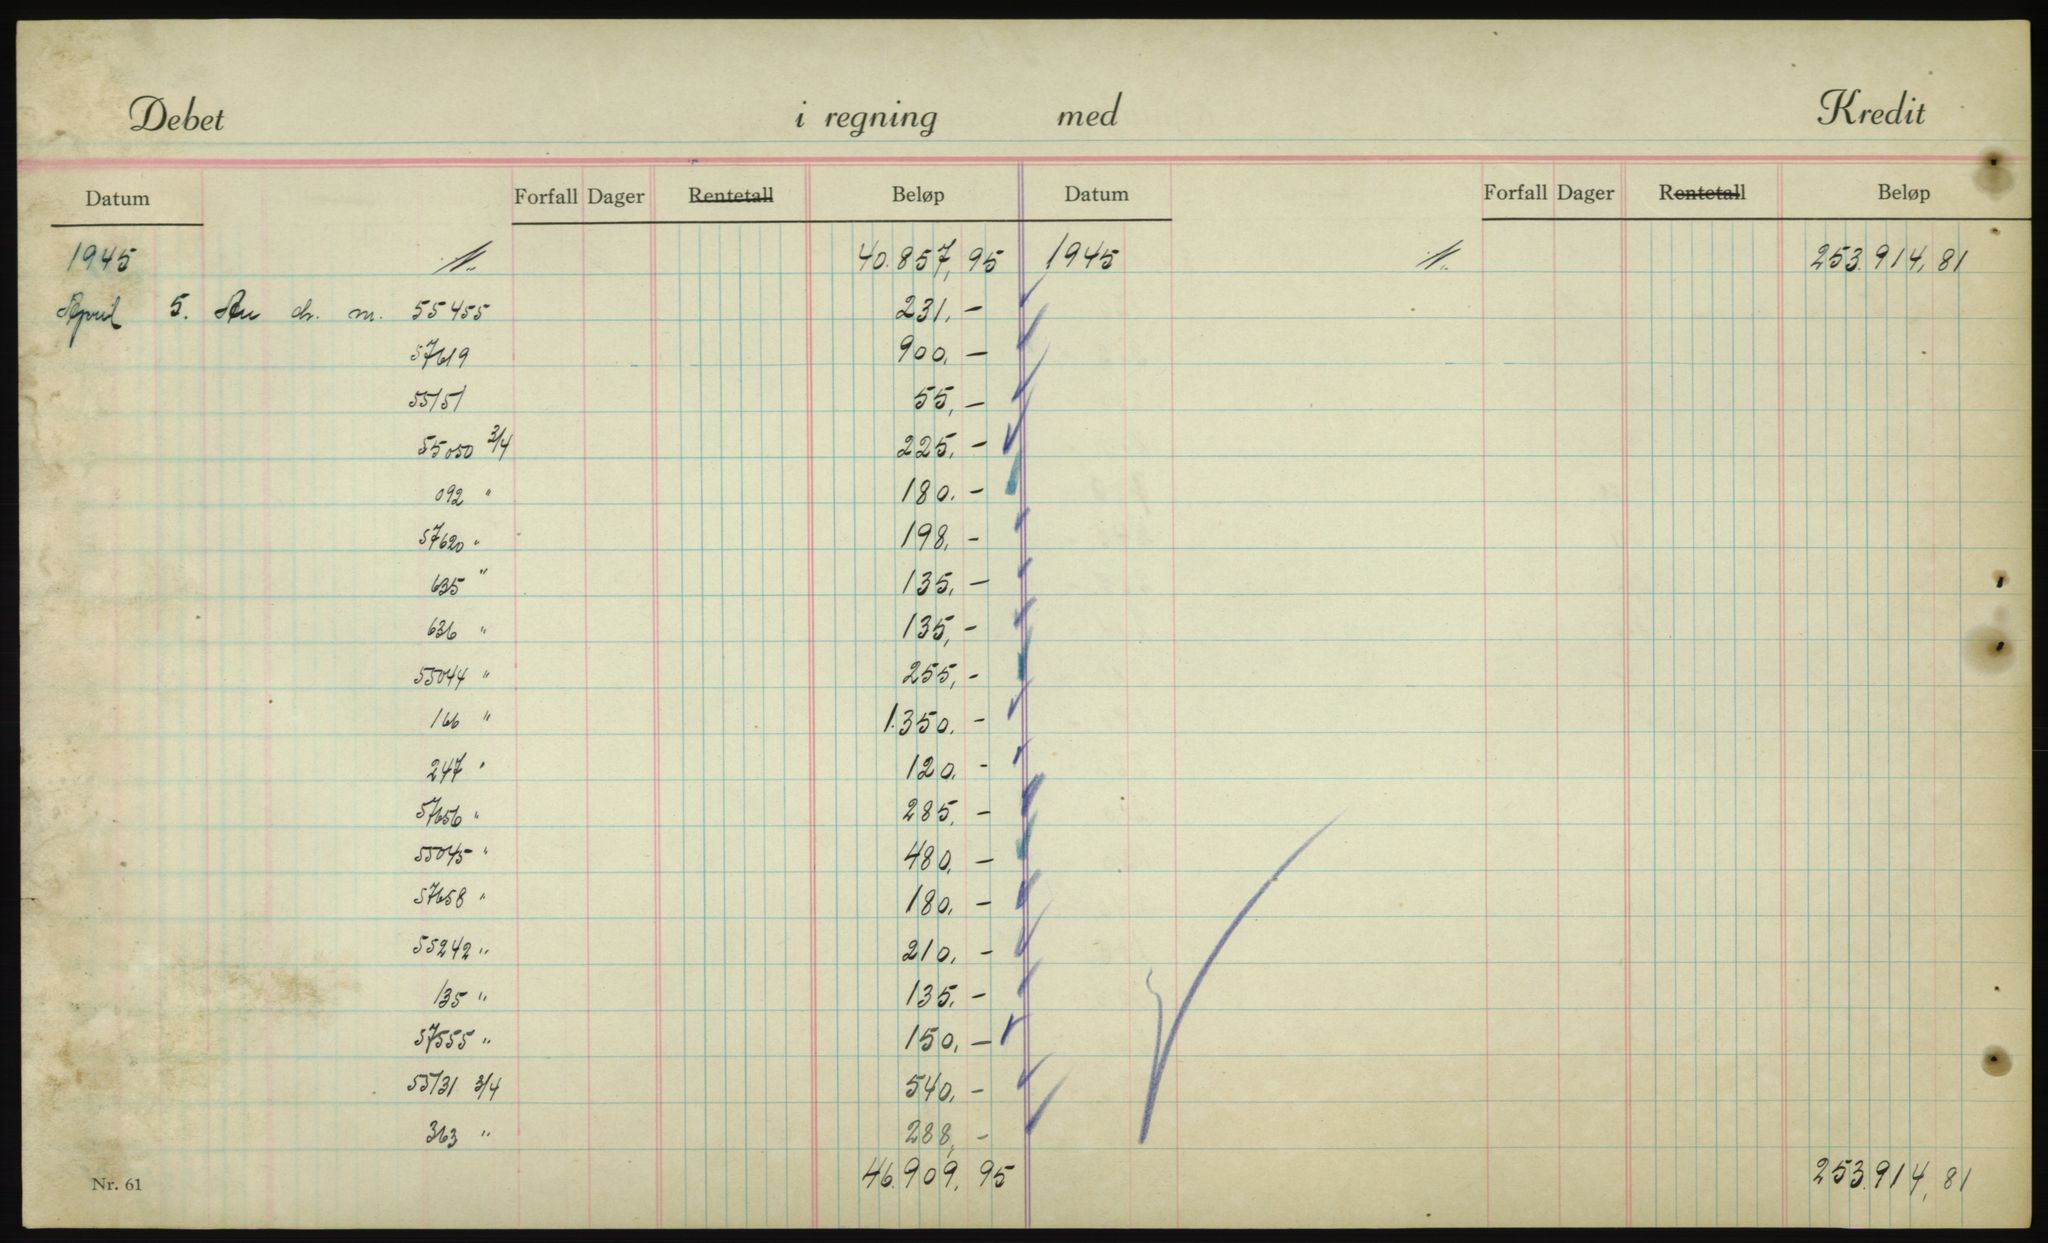 Debet i regning med Kredit
Datum Forfall Dager Rentetall Beløp Datum Forfall Dager Rentetall Beløp
1945 40.857,95 1945 253.914,81
April 5. An ch. nr. 55455 231,-
57619 900,-
55151 55,-
55050 3/4 225,-
092 " 180,-
57620 " 198,-
635 " 135,-
636 " 135,-
55044 " 255,-
166 " 1.350,-
247 " 120,-
57656 " 285,-
55045 " 480,-
57658 " 180,-
55242 " 210,-
135 " 135,-
57555 " 150,-
55131 3/4 540,-
363 " 288,-
Nr. 61 46.909,95 253.914,81